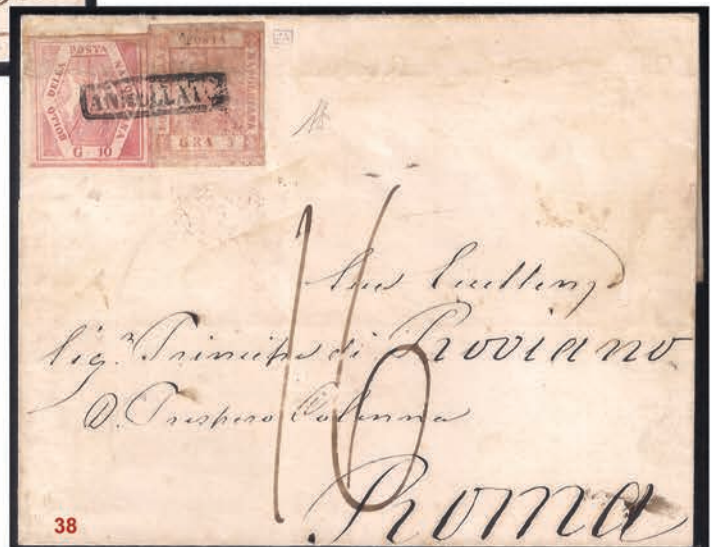 BOLLO DELLA POSTA NAPOLETANA
G. 10
POSTA
GRA 3
ANNULLATO
16
Sua Eccellenza
Sig.r Principe di Roviano
D. Prospero Colonna
Roma
38